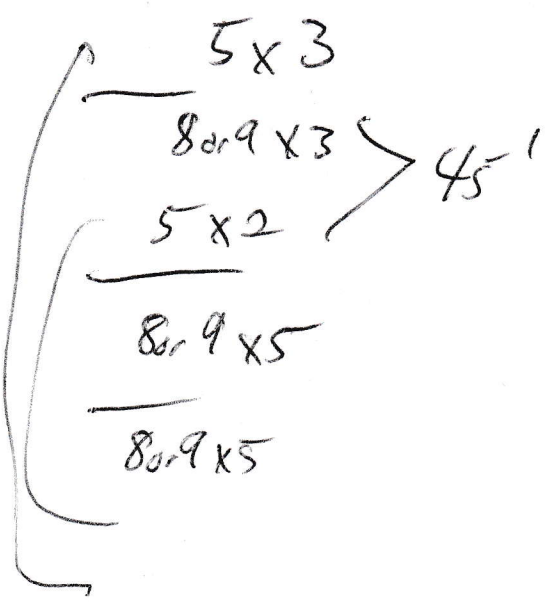 5 x 3
8 or 9 x 3
45'
5 x 2
8 or 9 x 5
8 or 9 x 5